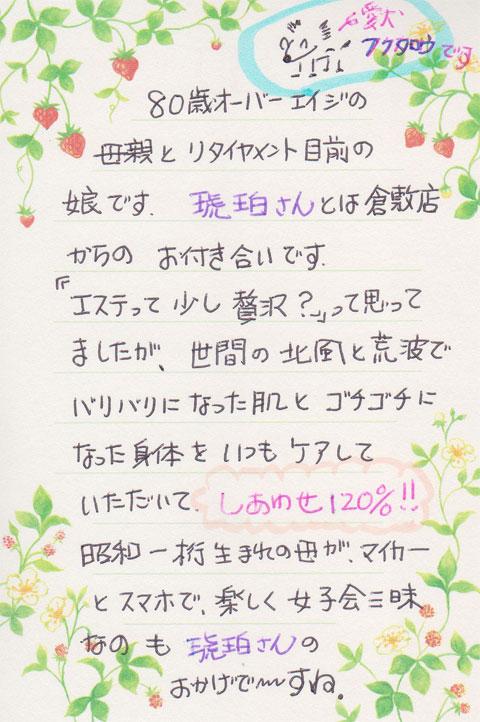 愛犬
フクタロウです
80歳オーバーエイジの
母親とリタイヤメント目前の
娘です. 琥珀さんとは倉敷店
からの お付き合いです.
『エステって少し贅沢?』って思って
ましたが、世間の北風と荒波で
バリバリになった肌と ゴチゴチに
なった身体を いつも ケアして
いただいて. しあわせ120%!!
昭和一桁生まれの母が、マイカー
とスマホで、楽しく女子会三昧
なのも 琥珀さんの
おかげで〜すね。